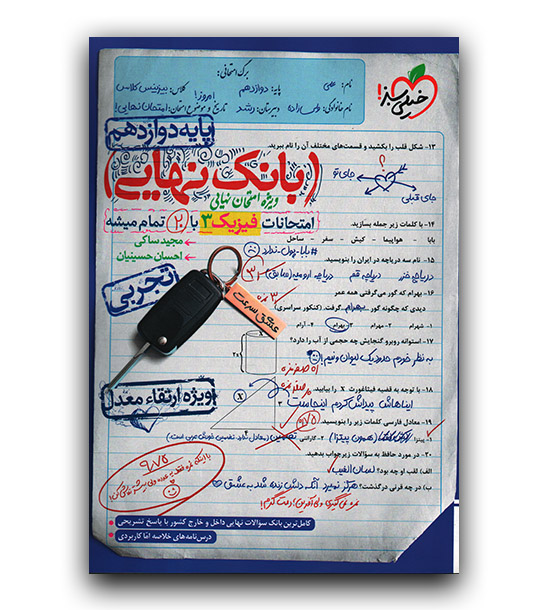 برگ امتحانی:
نام: علی
پایه: دوازدهم
کلاس: بیزینس کلاس
نام خانوادگی:
دبیرستان: رشد
تاریخ و موضوع امتحان: امروز! امتحان نهایی!
خیلی سبز!
پایه دوازدهم
(بانک نهایی)
ویژه امتحان نهایی
امتحانات فیزیک ۳ با ۲۰ تمام میشه
مجید ساکی
احسان حسینیان
تجربی
ویژه ارتقاء معدل
عشق سرعت
۱۳- شکل قلب را بکشید و قسمت‌های مختلف آن را نام ببرید.
؟
جای تو
جای قبلی
۱۴- با کلمات زیر جمله بسازید.
بابا - هواپیما - کیش - سفر - ساحل
#بابا-پول-ندارد
۱۵- نام سه دریاچه در ایران را بنویسید.
دریاچه خزر دریاچه قم دریاچه ارومیه (سابق)
۱۶- بهرام که گور می‌گرفتی همه عمر
دیدی که چگونه گور بهرام گرفت. (کنکور سراسری)
۱- شهرام ۲- مهرام ۳- بهرام ۴- آرام
۱۷- استوانه روبرو گنجایش چه حجمی از آب را دارد؟
به نظر خودم حدود یک لیوان و نیم!
2x
۱۸- با توجه به قضیه فیثاغورث X را بیابید.
ایناهاش پیداش کردم اینجاست
X
۱۹- معادل فارسی کلمات زیر را بنویسید.
۲۰- در مورد حافظ به سؤالات زیر جواب بدهید.
الف) لقب او چه بود؟ لسان الغیب
ب) در چه قرنی درگذشت؟ هرگز نمیرد آنکه دلش زنده شد به عشق
نمره نمی‌گیری ولی آفرین! دمت گرم!
۹/۷۵
کامل‌ترین بانک سؤالات نهایی داخل و خارج کشور با پاسخ تشریحی
درس‌نامه‌های خلاصه اما کاربردی